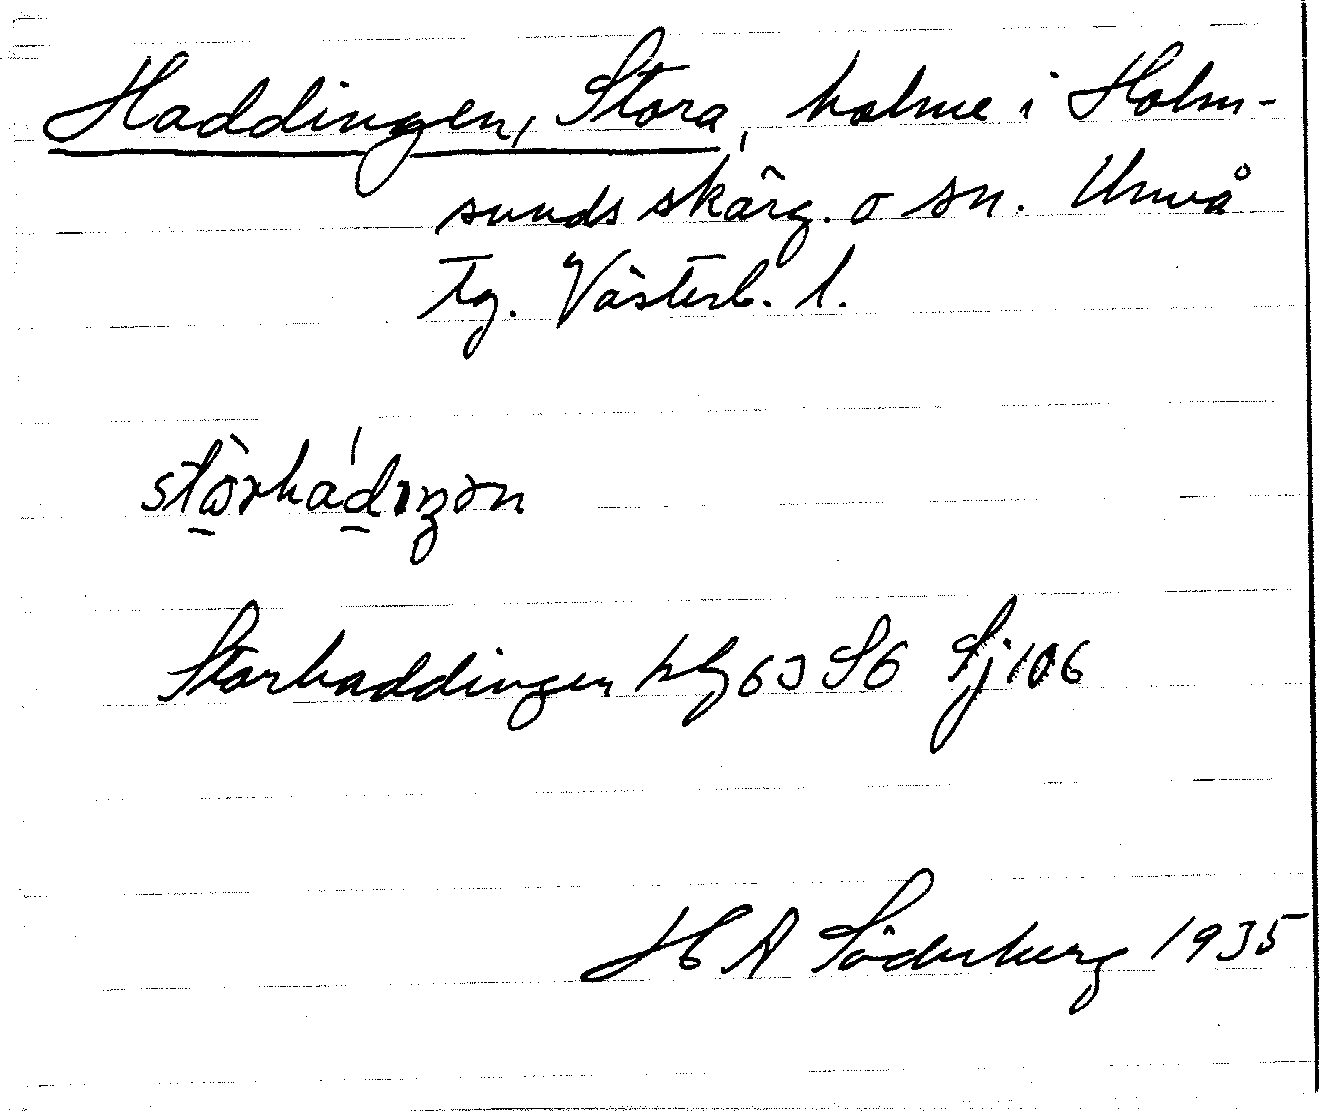 Haddingen, Stora, holme i Holm-
sunds skärg. o sn. Umeå
tg. Västerb. l.
Storhaddingen hbl 63 S6 Sj 106
H A Söderberg 1935